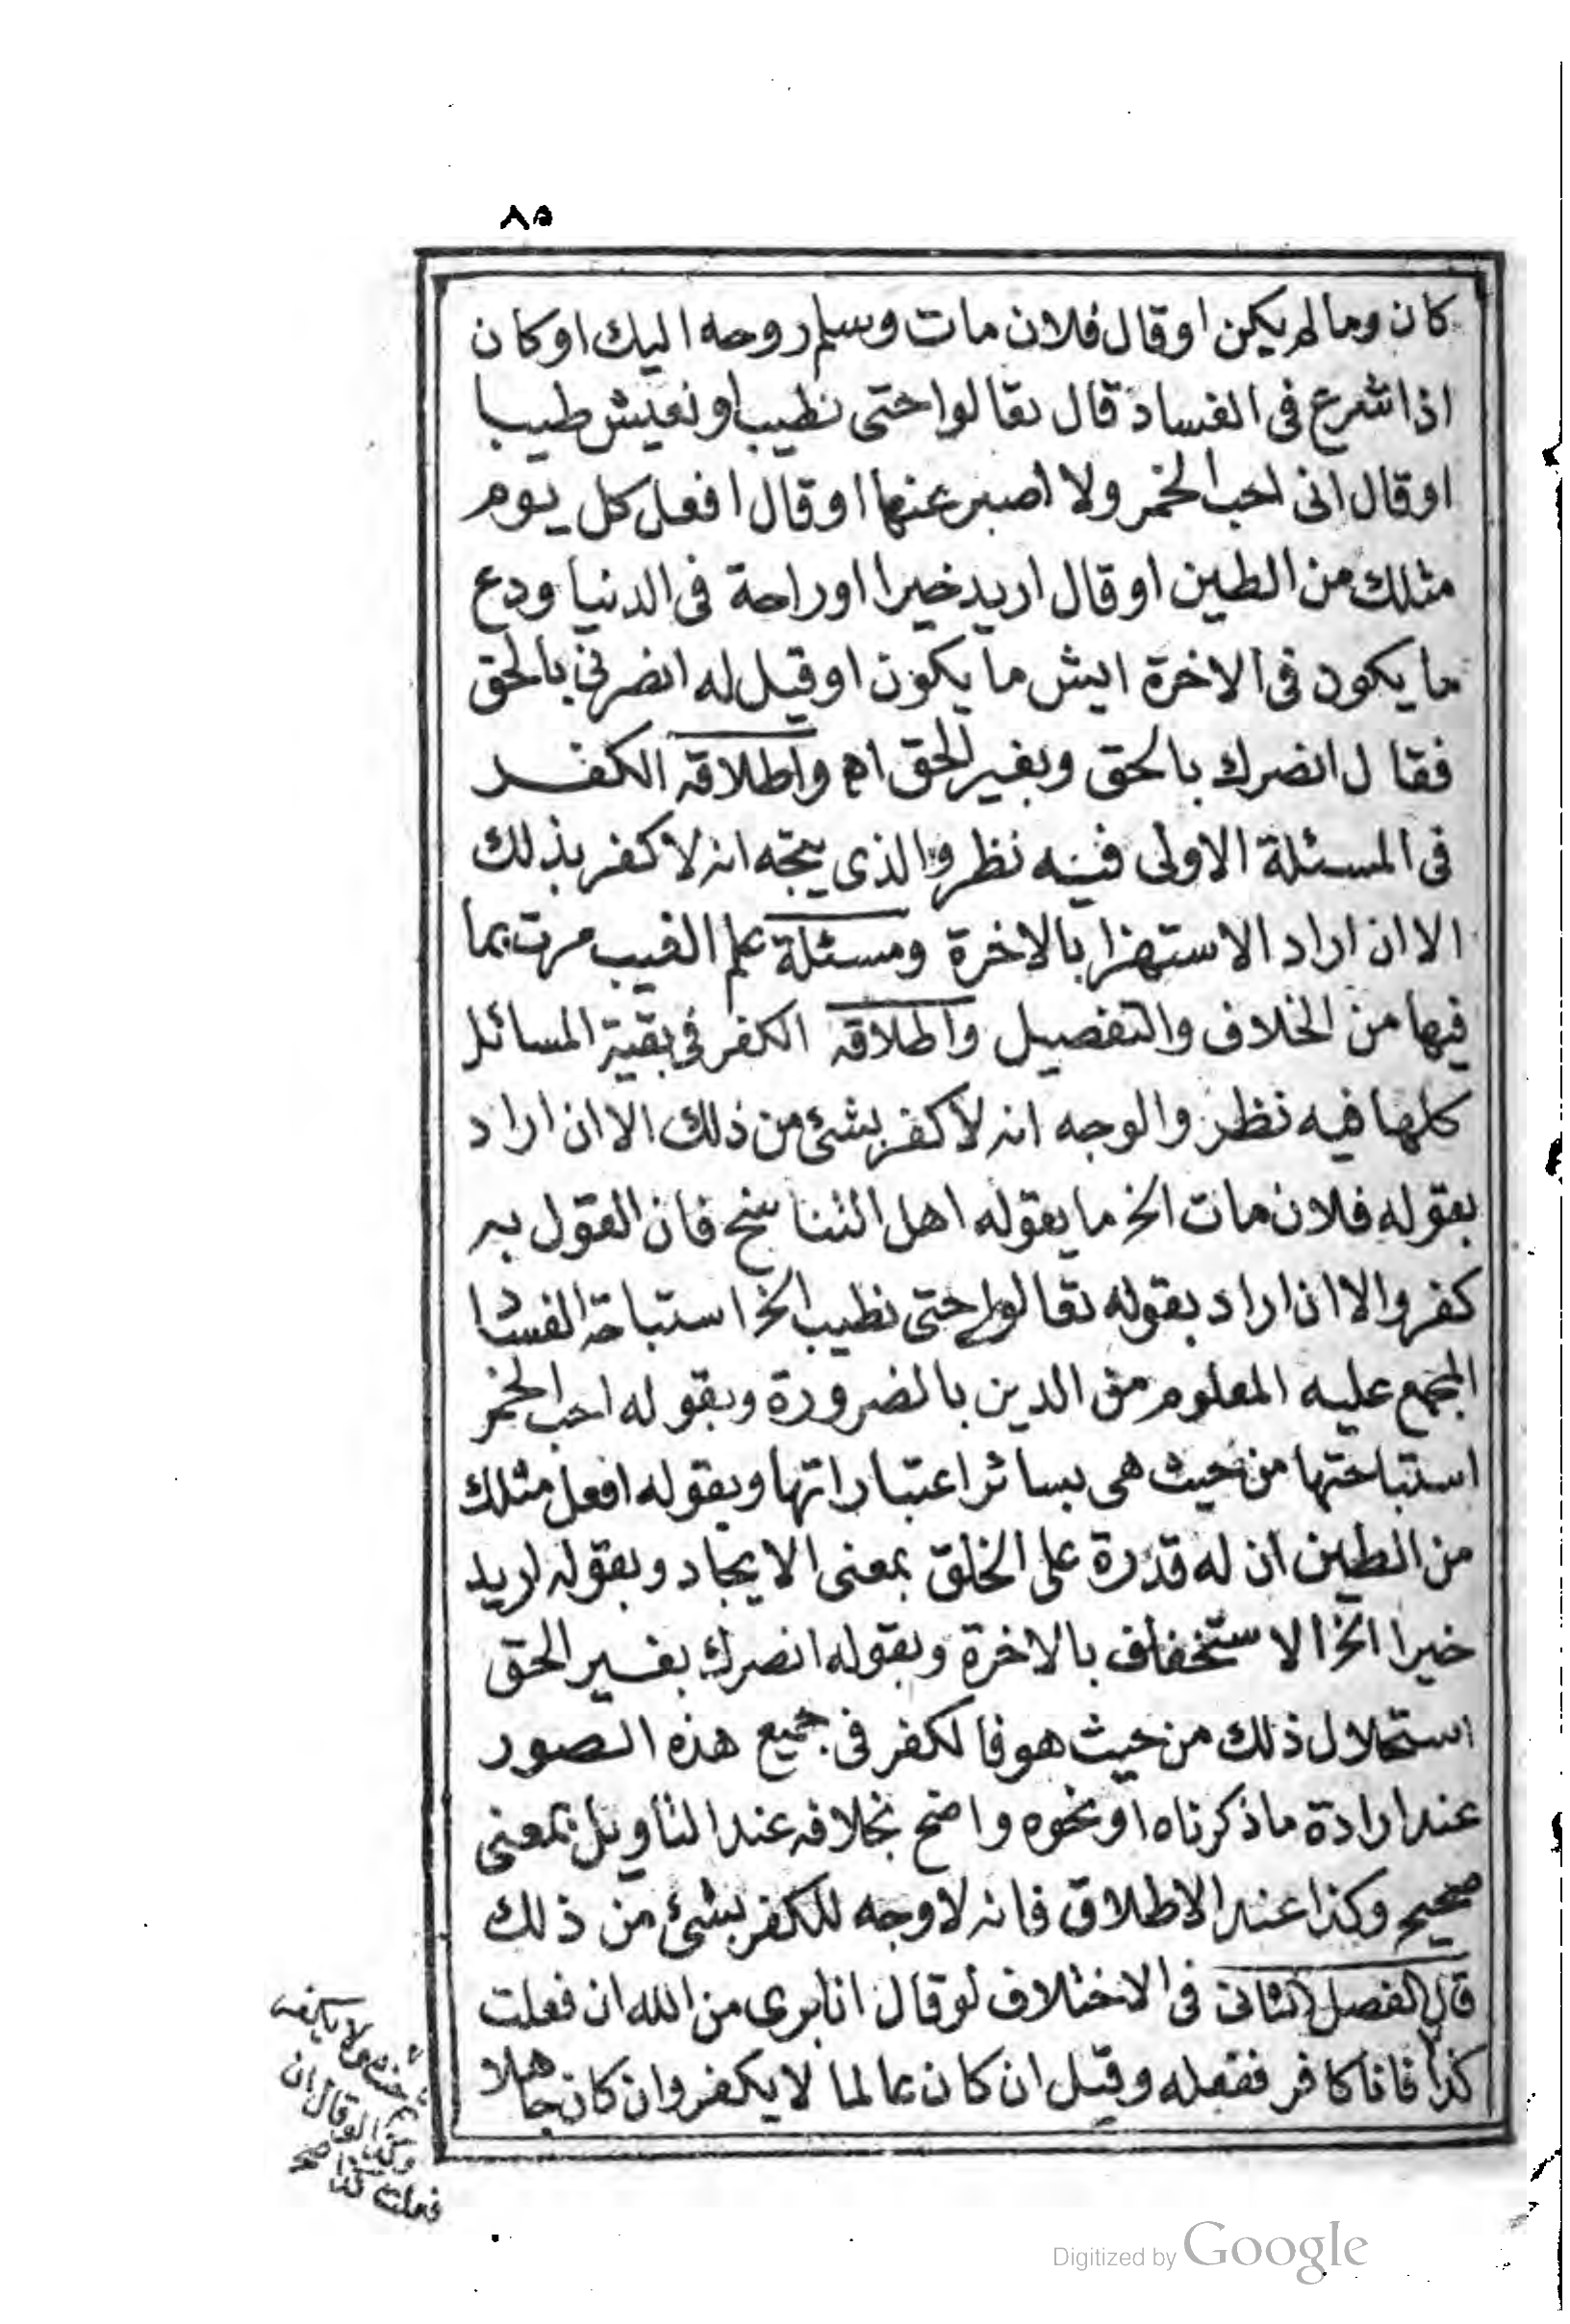 ٨٥
كان وما لم يكن او قال فلان مات وسلم روحه اليك او كان
اذا شرع فى الفساد قال تعالوا حتى نطيب او نعيش طيبا
او قال انى احب الخمر ولا اصبر عنها او قال افعل كل يوم
مثلك من الطين او قال اريد خيرا او راحة فى الدنيا ودع
ما يكون فى الاخرة ايش ما يكون او قيل له انصرنى بالحق
فقال انصرك بالحق وبغير الحق اه واطلاقه الكفر
فى المسئلة الاولى فيه نظر والذى يتجه انه لا كفر بذلك
الا ان اراد الاستهزا بالاخرة ومسئلة علم الغيب مرت بما
فيها من الخلاف والتفصيل واطلاقه الكفر فى بقية المسائل
كلها فيه نظر والوجه انه لا كفر بشئ من ذلك الا ان اراد
بقوله فلان مات الخ ما يقوله اهل التناسخ فان القول به
كفر والا ان اراد بقوله تعالوا حتى نطيب الخ استباحة الفساد
المجمع عليه المعلوم من الدين بالضرورة وبقوله احب الخمر
استباحتها من حيث هى بسائر اعتباراتها وبقوله افعل مثلك
من الطين ان له قدرة على الخلق بمعنى الايجاد وبقوله اريد
خيرا الخ الاستخفاف بالاخرة وبقوله انصرك بغير الحق
استحلال ذلك من حيث هو فالكفر فى جميع هذه الصور
عند ارادة ما ذكرناه او نحوه واضح بخلافه عند التأويل بمعنى
صحيح وكذا عند الاطلاق فانه لا وجه للكفر بشئ من ذلك
قال الفصل الثانى فى الاختلاف لو قال انا برى من الله ان فعلت
كذا فانا كافر ففعله وقيل ان كان عالما لا يكفر وان كان جاهلا
ولا يكفر
وكذا لو قال ان
فعلت كذا صح
Digitized by Google